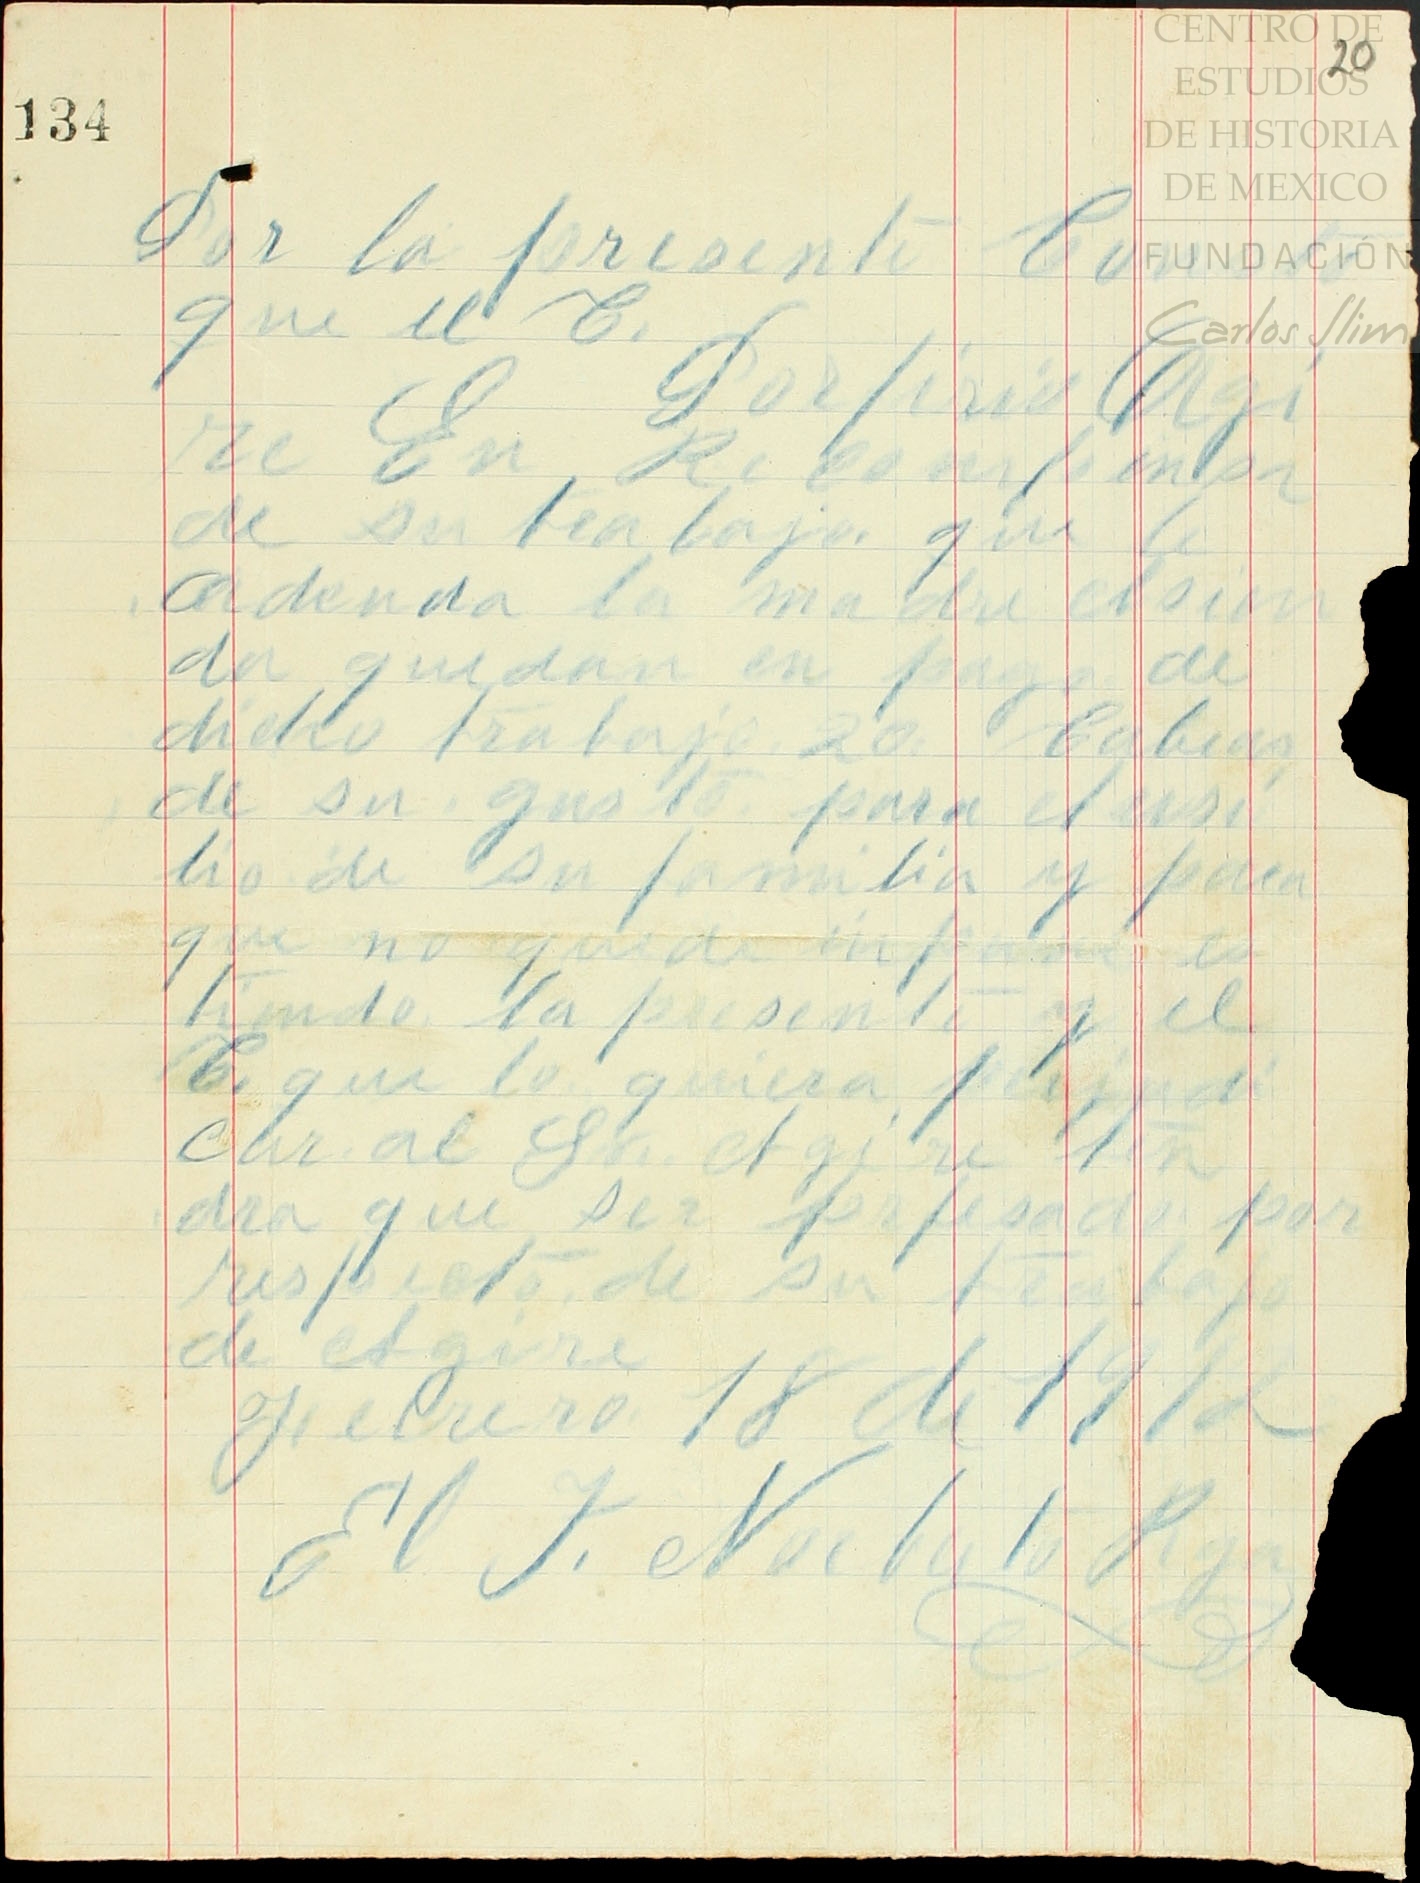 CENTRO DE
ESTUDIOS
DE HISTORIA
DE MEXICO
FUNDACIÓN
Carlos Slim
20
134
Por la presente
que el C.
Porfirio Agi
re En Recompensa
de su trabajo que le
Adeuda la madre
da quedan en pago de
dicho trabajo 20. Cabeas
de su gusto para el usi
lio de su familia y para
que no quede
tiendo la presente y el
C. que lo quiera perjudi
car al Sr. Agire ten
dra que ser por
respecto de su trabajo
de Agire
Febrero 18 de 1912
El J.